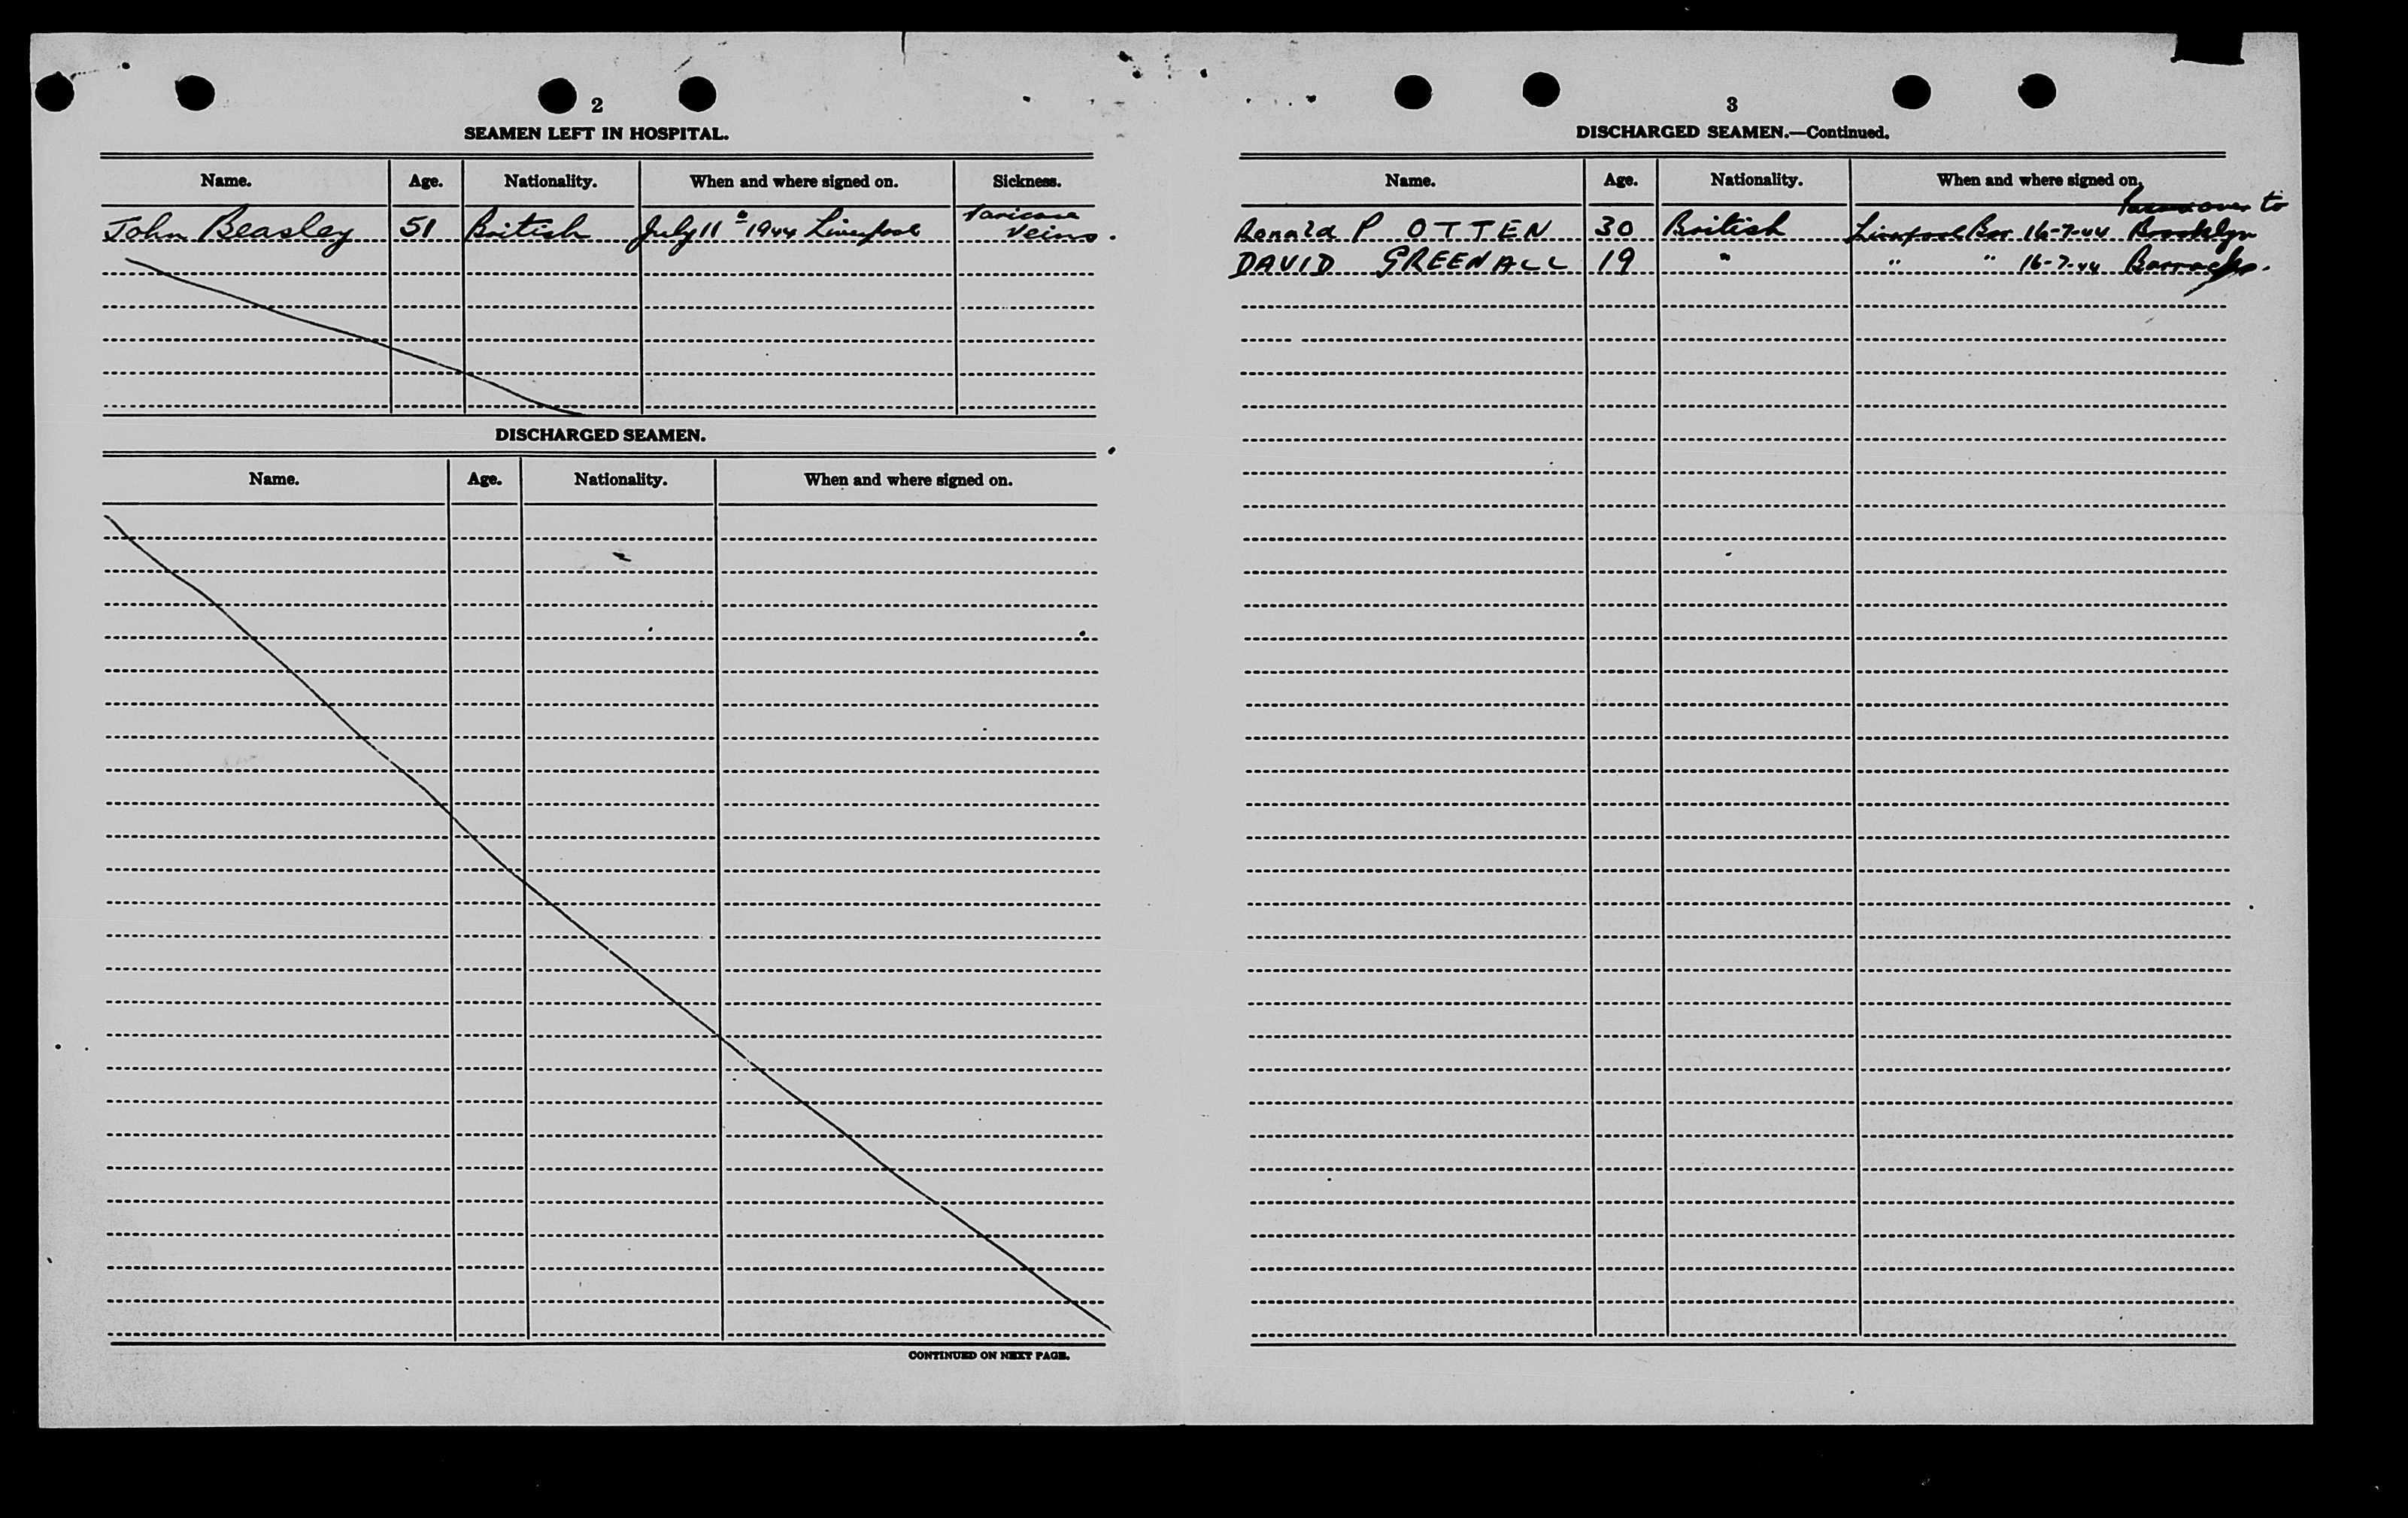 2
SEAMEN LEFT IN HOSPITAL.
Name. Age. Nationality. When and where signed on. Sickness.
John Beasley 51 British July 11 1944 Liverpool Varicose
Veins.
DISCHARGED SEAMEN.
Name. Age. Nationality. When and where signed on.
CONTINUED ON NEXT PAGE.
3
DISCHARGED SEAMEN.—Continued.
Name. Age. Nationality. When and where signed on.
over to
Ronald P OTTEN 30 British Liverpool Bar 16-7-44 Brooklyn
DAVID GREENALL 19 " " " 16-7-44 Barracks.